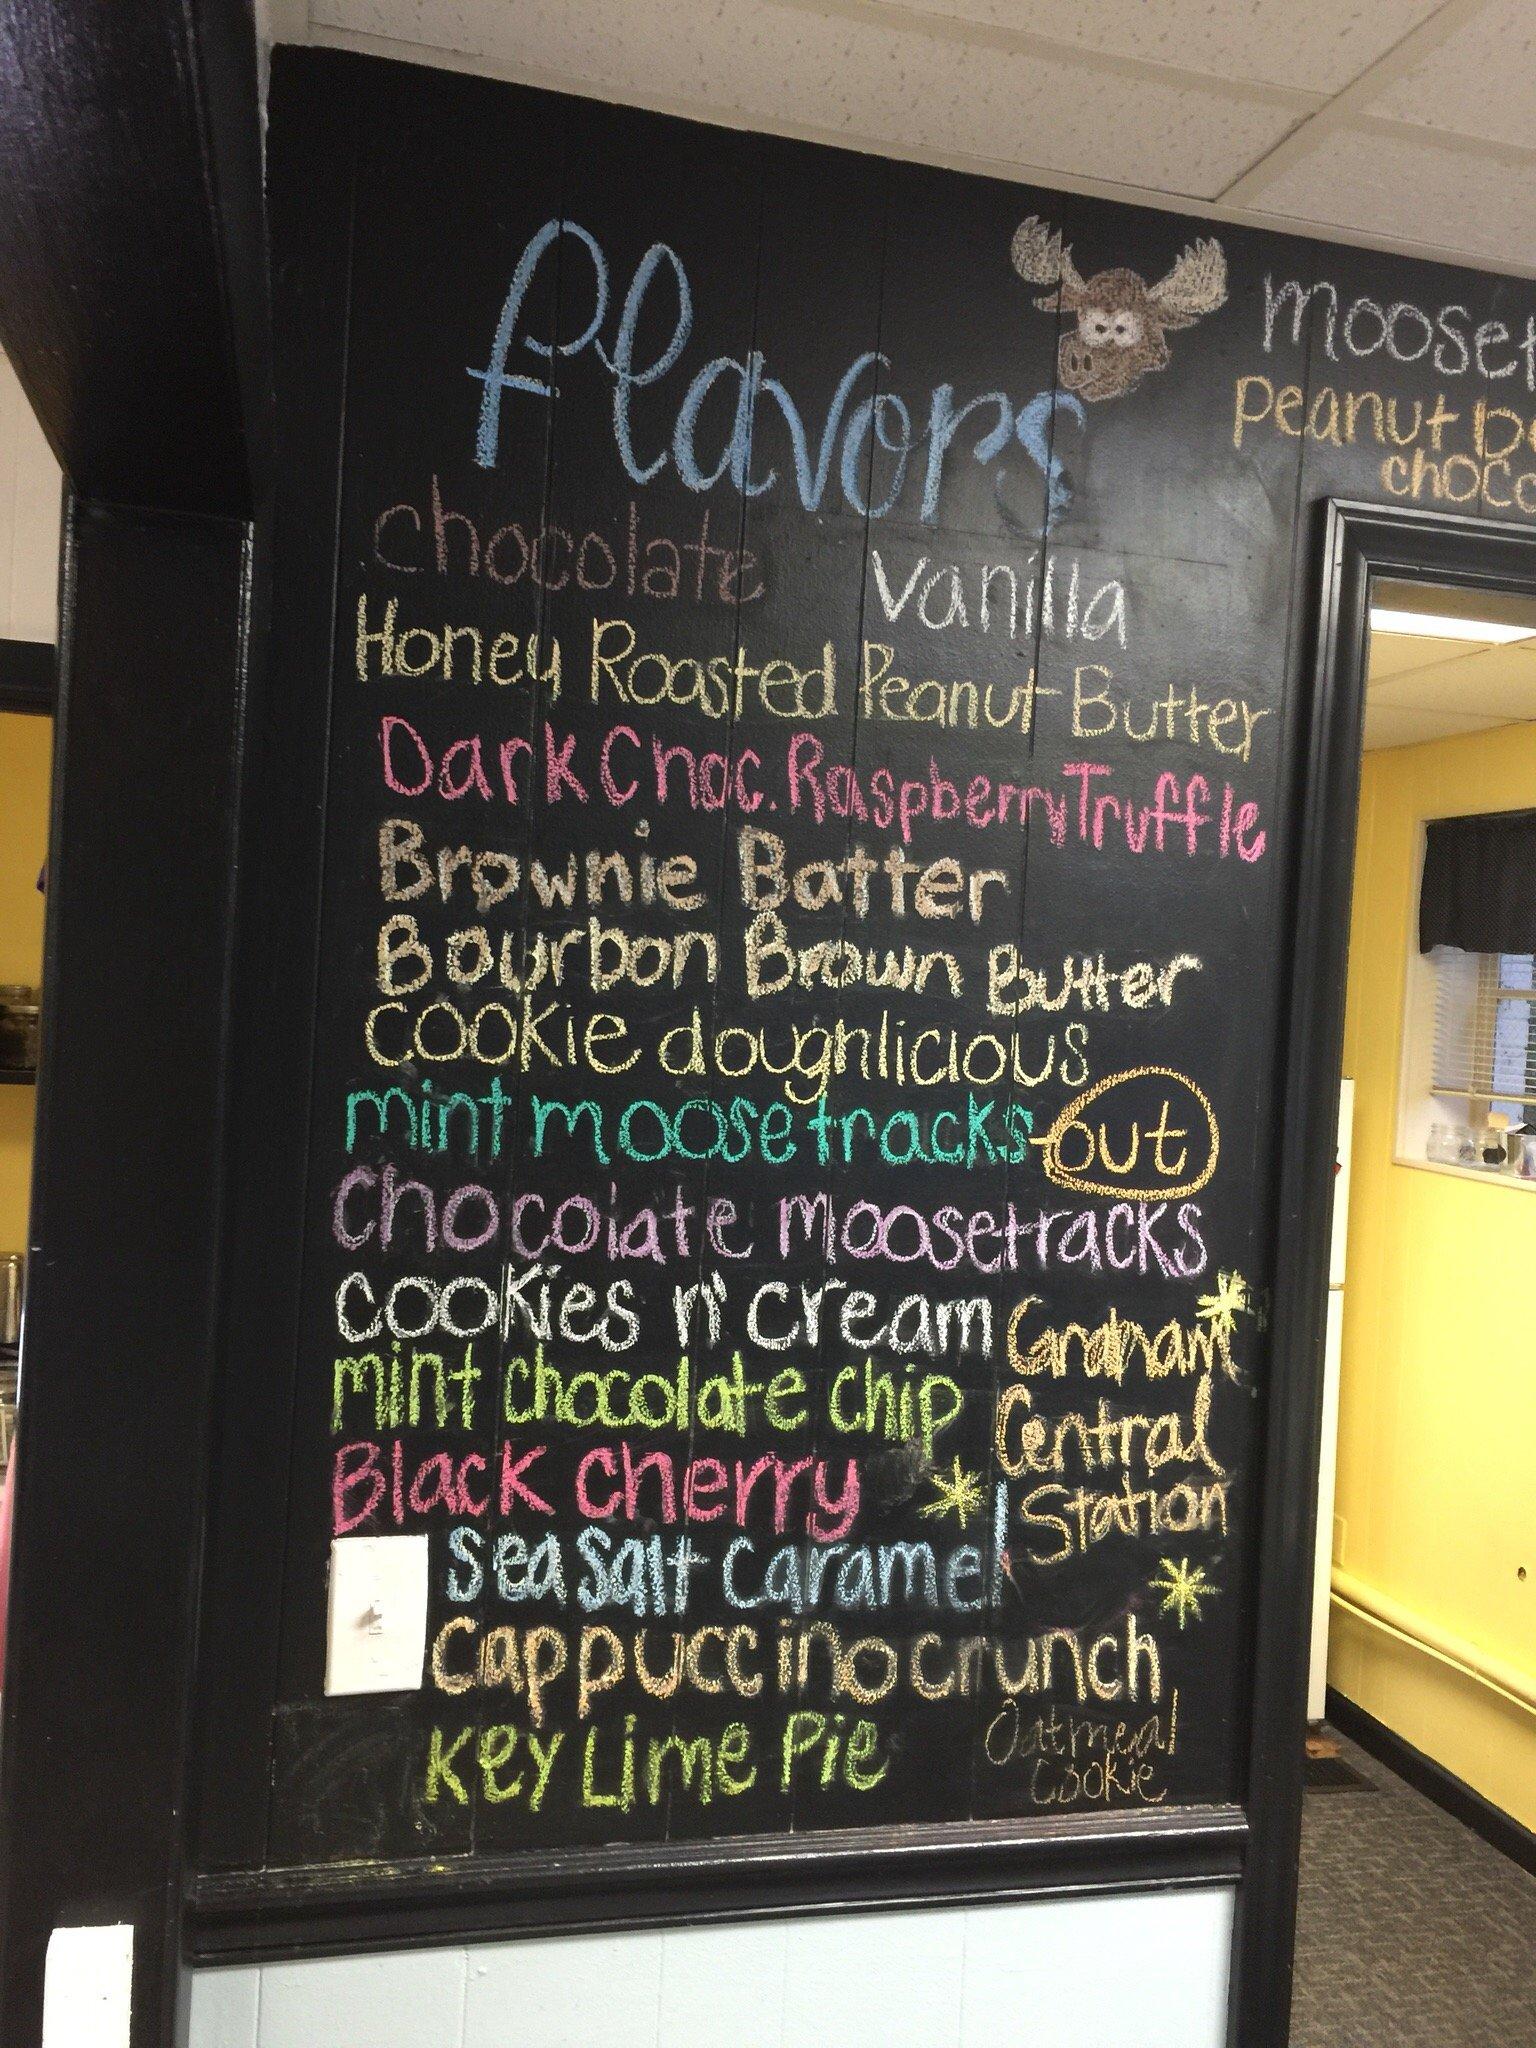 flavors
chocolate vanilla
Honey Roasted Peanut Butter
Dark Choc. Raspberry Truffle
Brownie Batter
Bourbon Brown Butter
cookie doughlicious
mint moosetracks-out
chocolate moosetracks
cookies n' cream
mint chocolate chip
Black cherry
Graham
Central
Station
sea salt caramel
cappuccino crunch
Key Lime Pie
Oatmeal
Cookie
Peanut